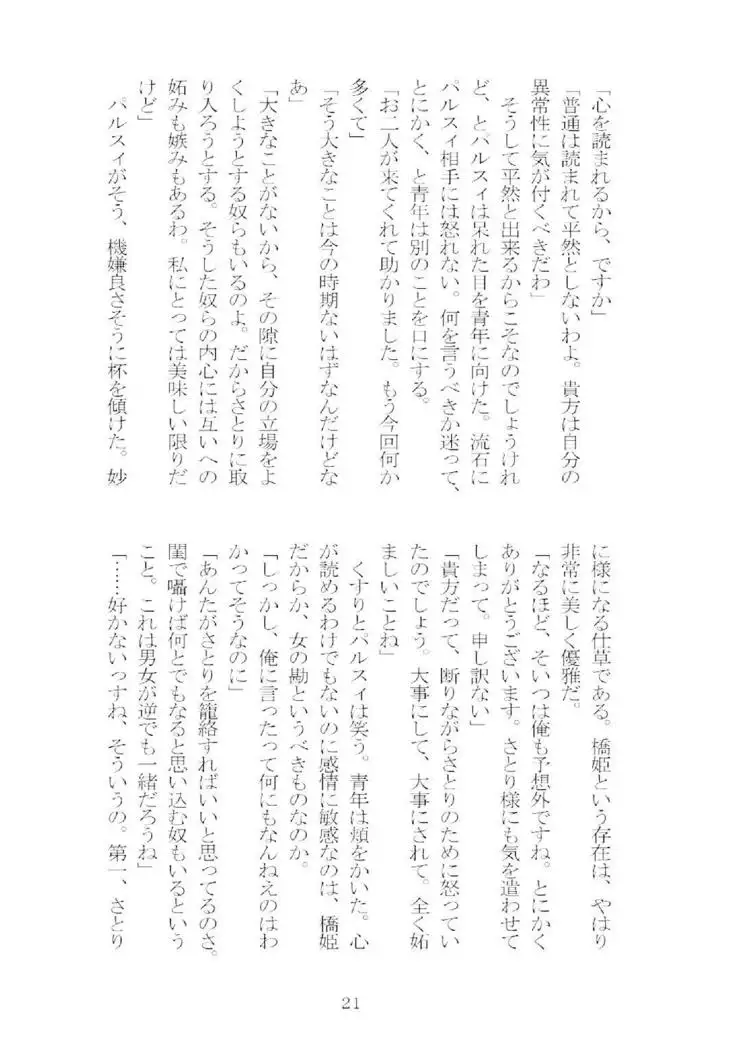 「心を読まれるから、ですか」
「普通は読まれて平然としないわよ。貴方は自分の
異常性に気が付くべきだわ」
　そうして平然と出来るからこそなのでしょうけれ
ど、とパルスィは呆れた目を青年に向けた。流石に
パルスィ相手には怒れない。何を言うべきか迷って、
とにかく、と青年は別のことを口にする。
「お二人が来てくれて助かりました。もう今回何か
多くて」
「そう大きなことは今の時期ないはずなんだけどな
あ」
「大きなことがないから、その隙に自分の立場をよ
くしようとする奴らもいるのよ。だからさとりに取
り入ろうとする。そうした奴らの内心には互いへの
妬みも嫉みもあるわ。私にとっては美味しい限りだ
けど」
　パルスィがそう、機嫌良さそうに杯を傾けた。妙
に様になる仕草である。橋姫という存在は、やはり
非常に美しく優雅だ。
「なるほど、そいつは俺も予想外ですね。とにかく
ありがとうございます。さとり様にも気を遣わせて
しまって。申し訳ない」
「貴方だって、断りながらさとりのために怒ってい
たのでしょう。大事にして、大事にされて。全く妬
ましいことね」
　くすりとパルスィは笑う。青年は頬をかいた。心
が読めるわけでもないのに感情に敏感なのは、橋姫
だからか、女の勘というべきものなのか。
「しっかし、俺に言ったって何にもなんねえのはわ
かってそうなのに」
「あんたがさとりを籠絡すればいいと思ってるのさ。
閨で囁けば何とでもなると思い込む奴もいるという
こと。これは男女が逆でも一緒だろうね」
「……好かないっすね、そういうの。第一、さとり
21